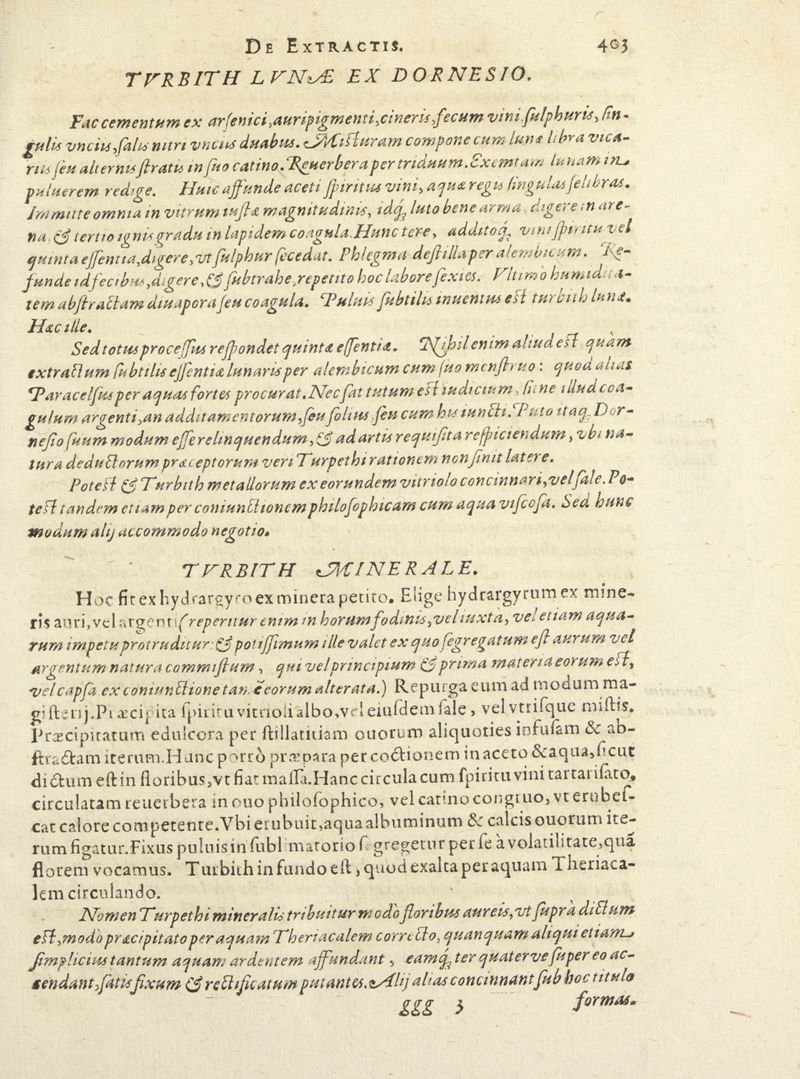 De Extractis. 403
TVRBITH LVNÆ EX DORNESIO.
Fac cementum ex arſenici, auripigmenti, cineris, fecum vini, ſulphuris, ſin-
gulis vnciis, ſalis nitri vnciis duabus. Miſturam compone cum lunæ libra vica-
riis ſeu alternis ſtratis in ſuo catino. Reuerbera per triduum. Exemtam lunam in
puluerem redige. Huic affunde aceti ſpiritus vini, aquæ regis ſingulas ſelibras.
Immitte omnia in vitrum iuſtæ magnitudinis, idq; luto bene arma, digere in are-
na, & tertio ignis gradu in lapidem coagula. Hunc tere, additoq; vini ſpiritu vel
quinta eſſentia, digere, vt ſulphur ſecedat. Phlegma deſtilla per alembicum. Re-
funde id fecibus, digere, & ſubtrahe, repetito hoc labore ſexies. Vltimo humidita-
tem abſtractam diuapora ſeu coagula. Puluis ſubtilis inuentus eſt turbith lunæ.
Hæc ille.
Sed totus proceſſus reſpondet quintæ eſſentiæ. Nihil enim aliud eſt quàm
extractum ſubtilis eſſentiæ lunaris per alembicum cum ſuo menſtruo: quod alias
Paracelſus per aquas fortes procurat. Nec ſat tutum eſt iudicium, ſitne illud coa-
gulum argenti, an additamentorum, ſeu ſolius ſeu cum his iuncti. Puto itaq; Dor-
neſio ſuum modum eſſe relinquendum, & ad artis requiſita reſpiciendum, vbi na-
tura deductorum præceptorum veri Turpethi rationem non ſinit latere.
Poteſt & Turbith metallorum ex eorundem vitriolo concinnari, vel ſale. Po-
teſt tandem etiam per coniunctionem philoſophicam cum aqua viſcoſa. Sed hunc
modum alij accommodo negotio.
TVRBITH MINERALE.
Hoc fit ex hydrargyro ex minera petito. Elige hydrargyrum ex mine-
ris auri, vel argenti (reperitur enim in horum fodinis, vel iuxta, vel etiam aqua-
rum impetu protruditur: & potiſſimum ille valet ex quo ſegregatum eſt aurum vel
argentum natura commiſtum, qui vel principium & prima materia eorum eſt,
vel capſa ex coniunctione tan. eorum alterata.) Repurga eum ad modum ma-
giſterij. Præcipita ſpiritu vitrioli albo, vel eiuſdem ſale, vel vtriſque miſtis.
Præcipitatum edulcora per ſtillatitiam ouorum aliquoties infuſam & ab-
ſtractam iterum. Hunc porrò præpara per coctionem in aceto & aqua, ſicut
dictum eſt in floribus, vt fiat maſſa. Hanc circula cum ſpiritu vini tartariſato,
circulatam reuerbera in ouo philoſophico, vel catino congruo, vt erubeſ-
cat calore competente. Vbi erubuit, aqua albuminum & calcis ouorum ite-
rum figatur. Fixus puluis in ſublimatorio ſegregetur per ſe à volatilitate, quã
florem vocamus. Turbith in fundo eſt, quod exalta per aquam Theriaca-
lem circulando.
Nomen Turpethi mineralis tribuitur modò floribus aureis, vt ſuprà dictum
eſt, modò præcipitato per aquam Theriacalem correcto, quanquam aliqui etiam
ſimplicius tantum aquam ardentem affundant, eamq; ter quaterve ſuper eo ac-
cendant, ſatis fixum & rectificatum putantes. Alij alias concinnant ſub hoc titulo
ggg 3 formas.